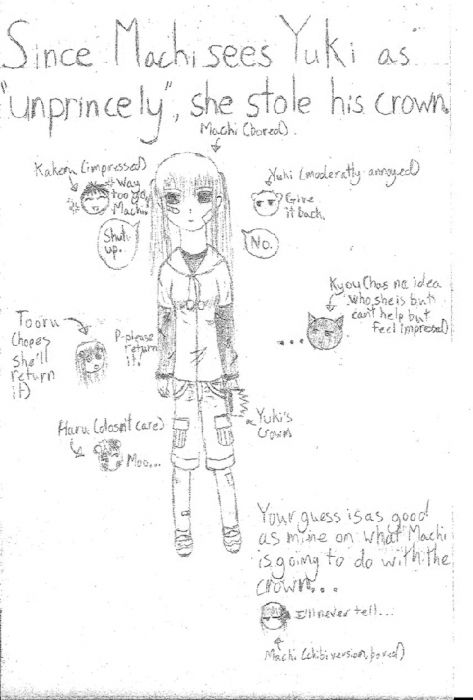 Since Machi sees Yuki as
"unprincely", she stole his crown.
Machi (bored).
Kakeru (impressed)
Way
too go,
Machi.
Shut
up.
Yuki (moderatly annoyed)
Give
it back.
No.
Kyou (has no idea
who she is but
can't help but
feel impressed)
...
Tooru
(hopes
she'll
return
it)
P-please
return
it.
Haru (dosn't care)
Moo...
Yuki's
Crown
Your guess is as good
as mine on what Machi
is going to do with the
crown...
I'll never tell...
Machi (chibi version, bored)